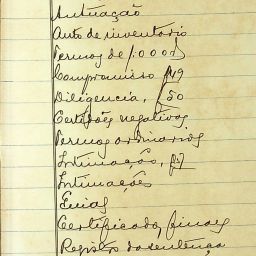 Autuação
Auto de inventario
Termos de 1:000$
Compromisso f 49
Diligencia, f 50
Certidões negativas
Termos ordinarios
Intimação, f7
Intimações
Guias
Certificado, finaes
Registro da sentença